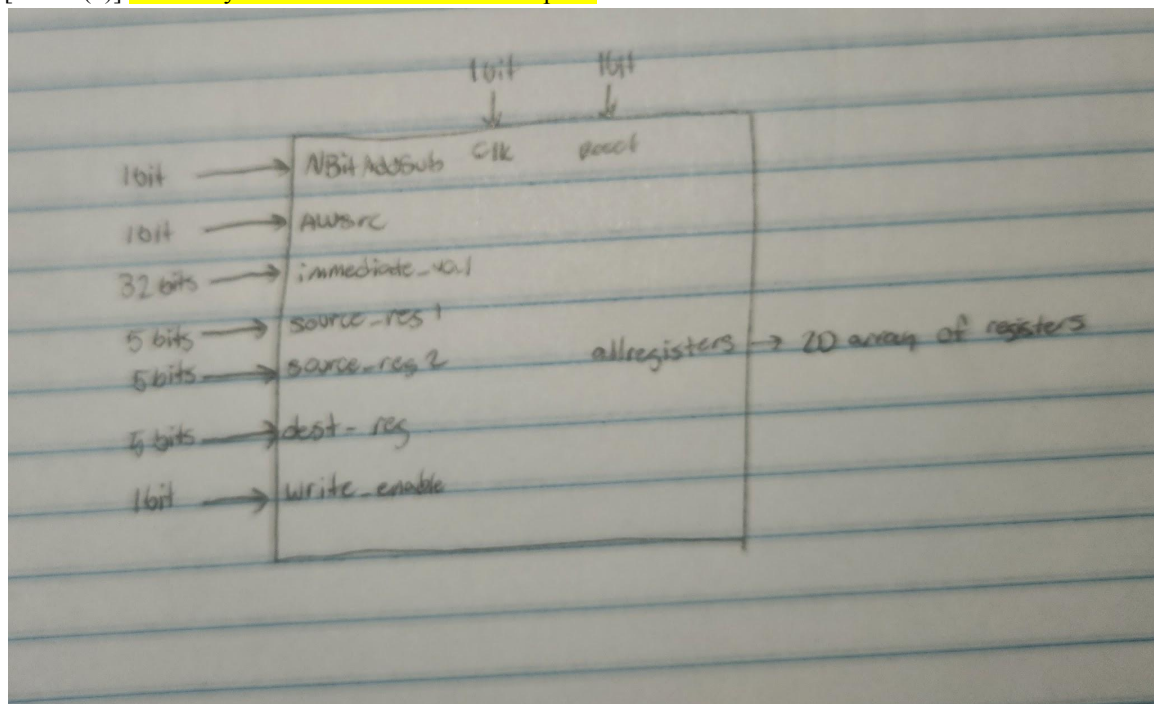 1bit 1bit
1bit NBitAddSub Clk reset
1bit ALUSrc
32 bits immediate_val
5 bits source_reg1
5 bits source_reg 2 allregisters 2D array of registers
5 bits dest_reg
1bit write_enable